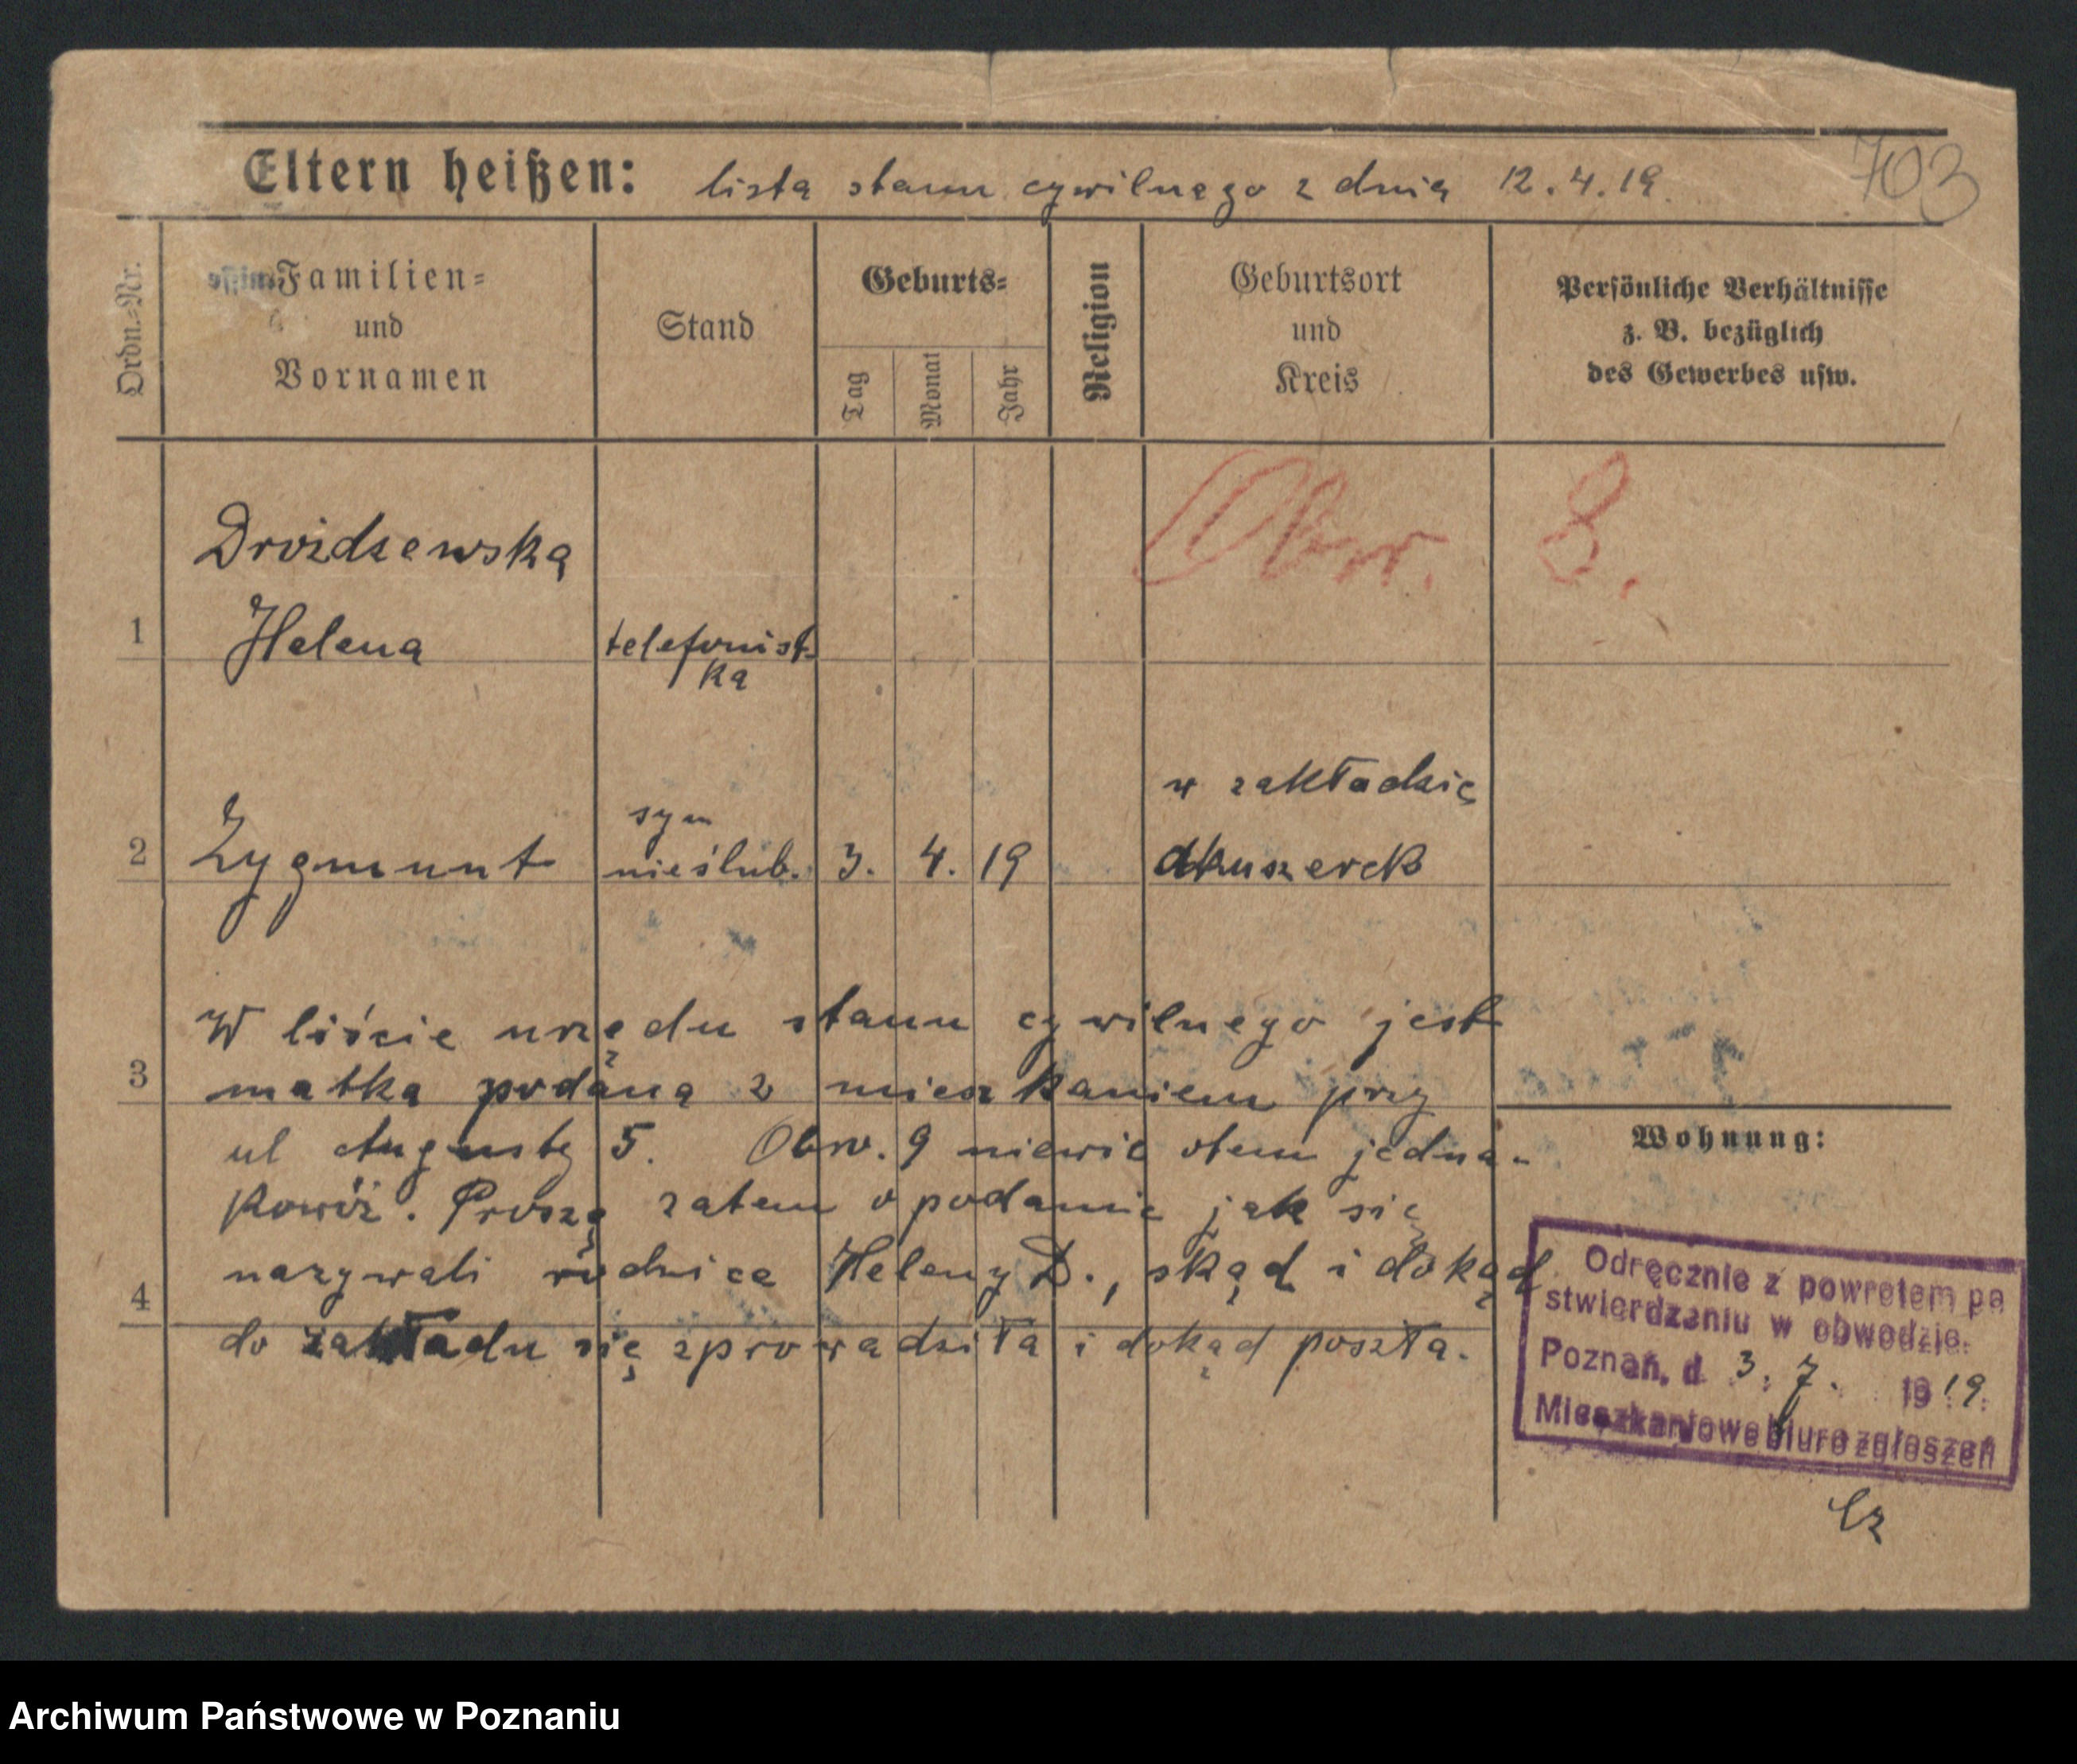 703
Eltern heißen: lista stanu cywilnego z dnia 12.4.19.
Ordn.=Nr.
Familien=
und
Vornamen
Stand
Geburts=
Tag
Monat
Jahr
Religion
Geburtsort
und
Kreis
Persönliche Verhältnisse
z. B. bezüglich
des Gewerbes usw.
Obw. 8.
Drożdzewska
1 Helena telefonist-
ka
w zakładzie
syn
2 Zygmunt nieślub. 3. 4. 19 Akuszerek
W liście urzędu stanu cywilnego jest
3 matka podana z mieszkaniem przy
ul Augusty 5. Obw. 9 niewie otem jedna-
kowóż. Proszę zatem o podanie jak się
nazywali rodzice Heleny D., skąd i dokąd
4
do zakładu się sprowadziła i dokąd poszła.
Wohnung:
Odręcznie z powrotem po
stwierdzeniu w obwodzie.
Poznań, d 3. 7. 1919.
Mieszkaniowe biuro zgłoszeń
Archiwum Państwowe w Poznaniu